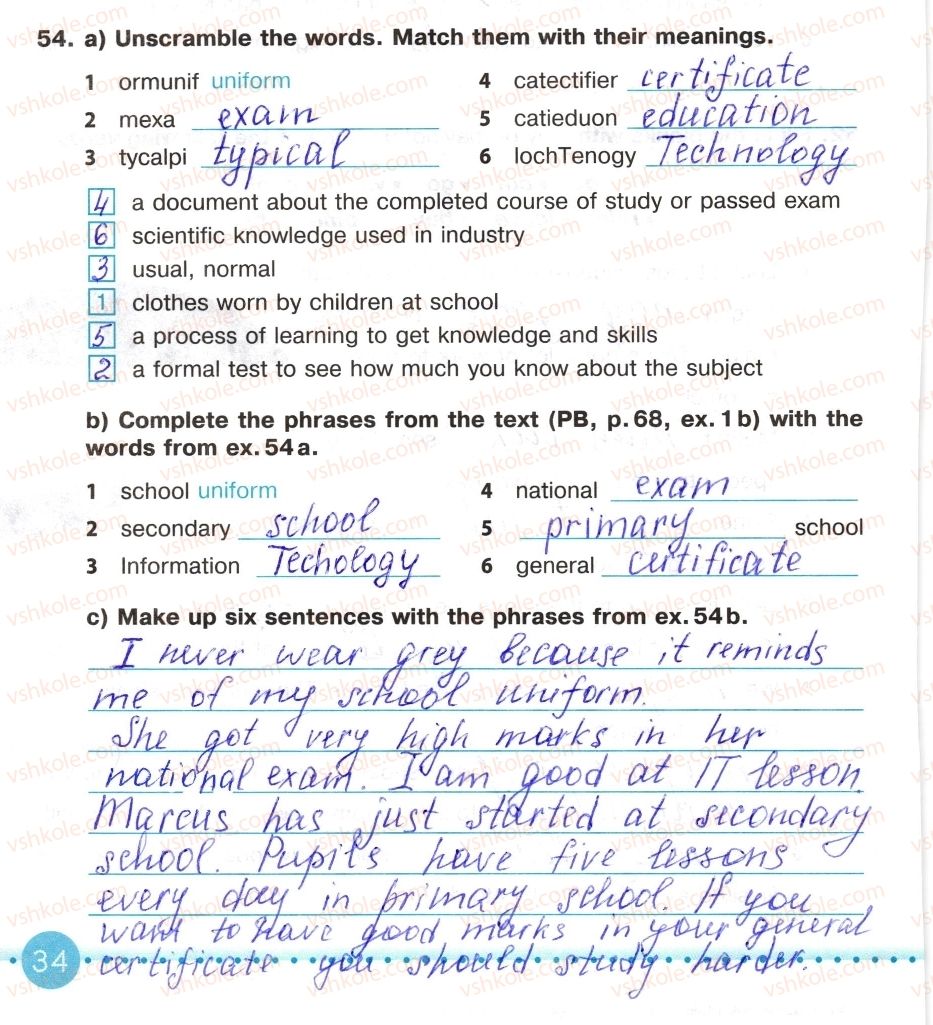 54. a) Unscramble the words. Match them with their meanings.
1 ormunif uniform
4 catectifier certificate
2 mexa exam
5 catieduon education
3 tycalpi typical
6 lochTenogy Technology
4 a document about the completed course of study or passed exam
6 scientific knowledge used in industry
3 usual, normal
1 clothes worn by children at school
5 a process of learning to get knowledge and skills
2 a formal test to see how much you know about the subject
b) Complete the phrases from the text (PB, p. 68, ex. 1 b) with the
words from ex. 54 a.
1 school uniform
4 national exam
2 secondary school
5 primary school
3 Information Techology
6 general certificate
c) Make up six sentences with the phrases from ex. 54 b.
I never wear grey because it reminds
me of my school uniform.
She got very high marks in her
national exam. I am good at IT lesson.
Marcus has just started at secondary
school. Pupils have five lessons
every day in primary school. If you
want to have good marks in your general
34 certificate you should study harder.
vshkole.com